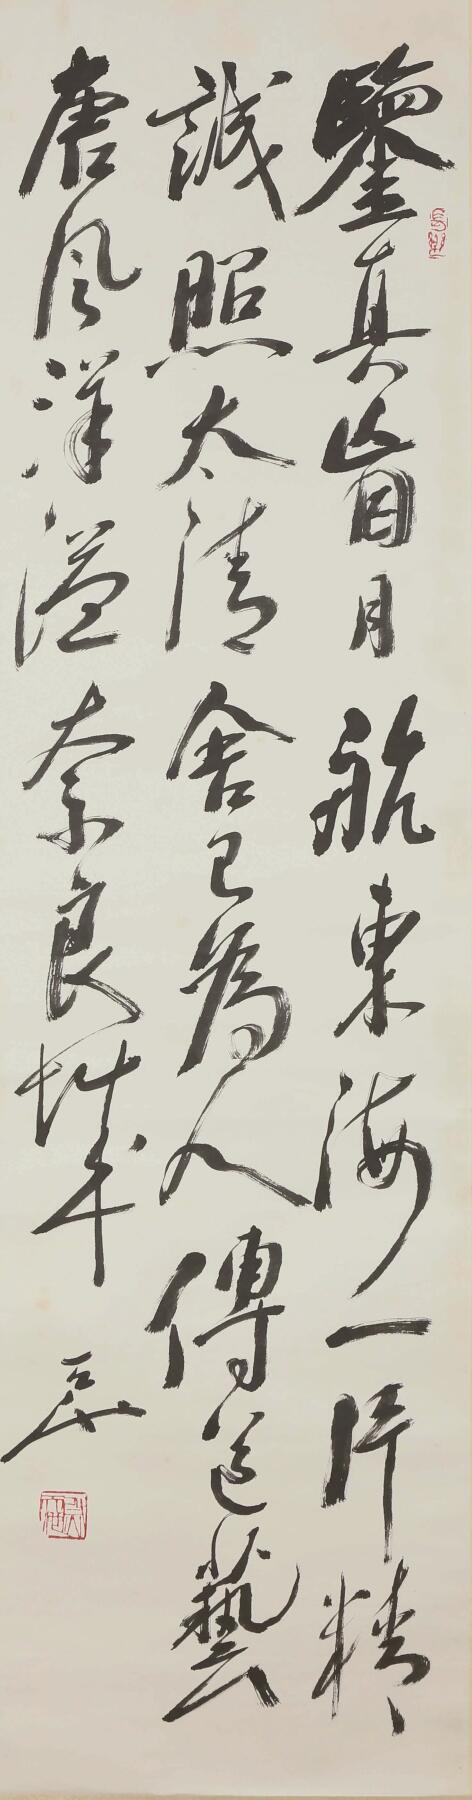 鑒真盲目航東海一片精
誠照太清舍己為人傳道藝
唐風洋溢奈良城